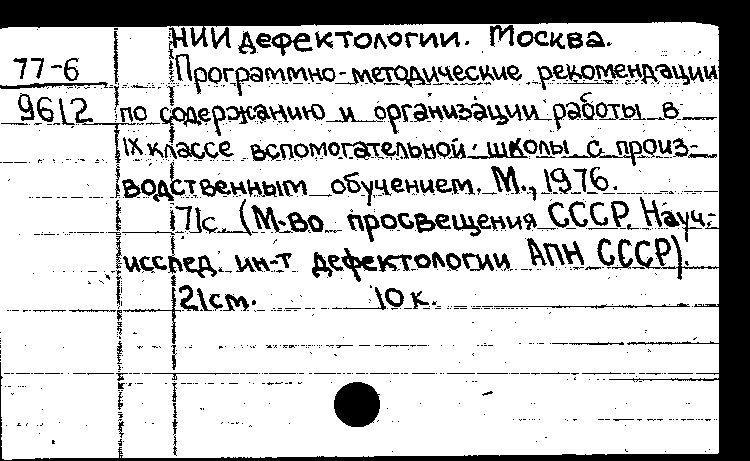 НИИ дефектологии. Москва.
77-6
Программно-методические рекомендации
9612
по содержанию и организации работы в
IX классе вспомогательной школы с произ-
водственным обучением. М., 1976.
71с. (М-во просвещения СССР. Науч.-
исслед. ин-т дефектологии АПН СССР).
21см. 10к.